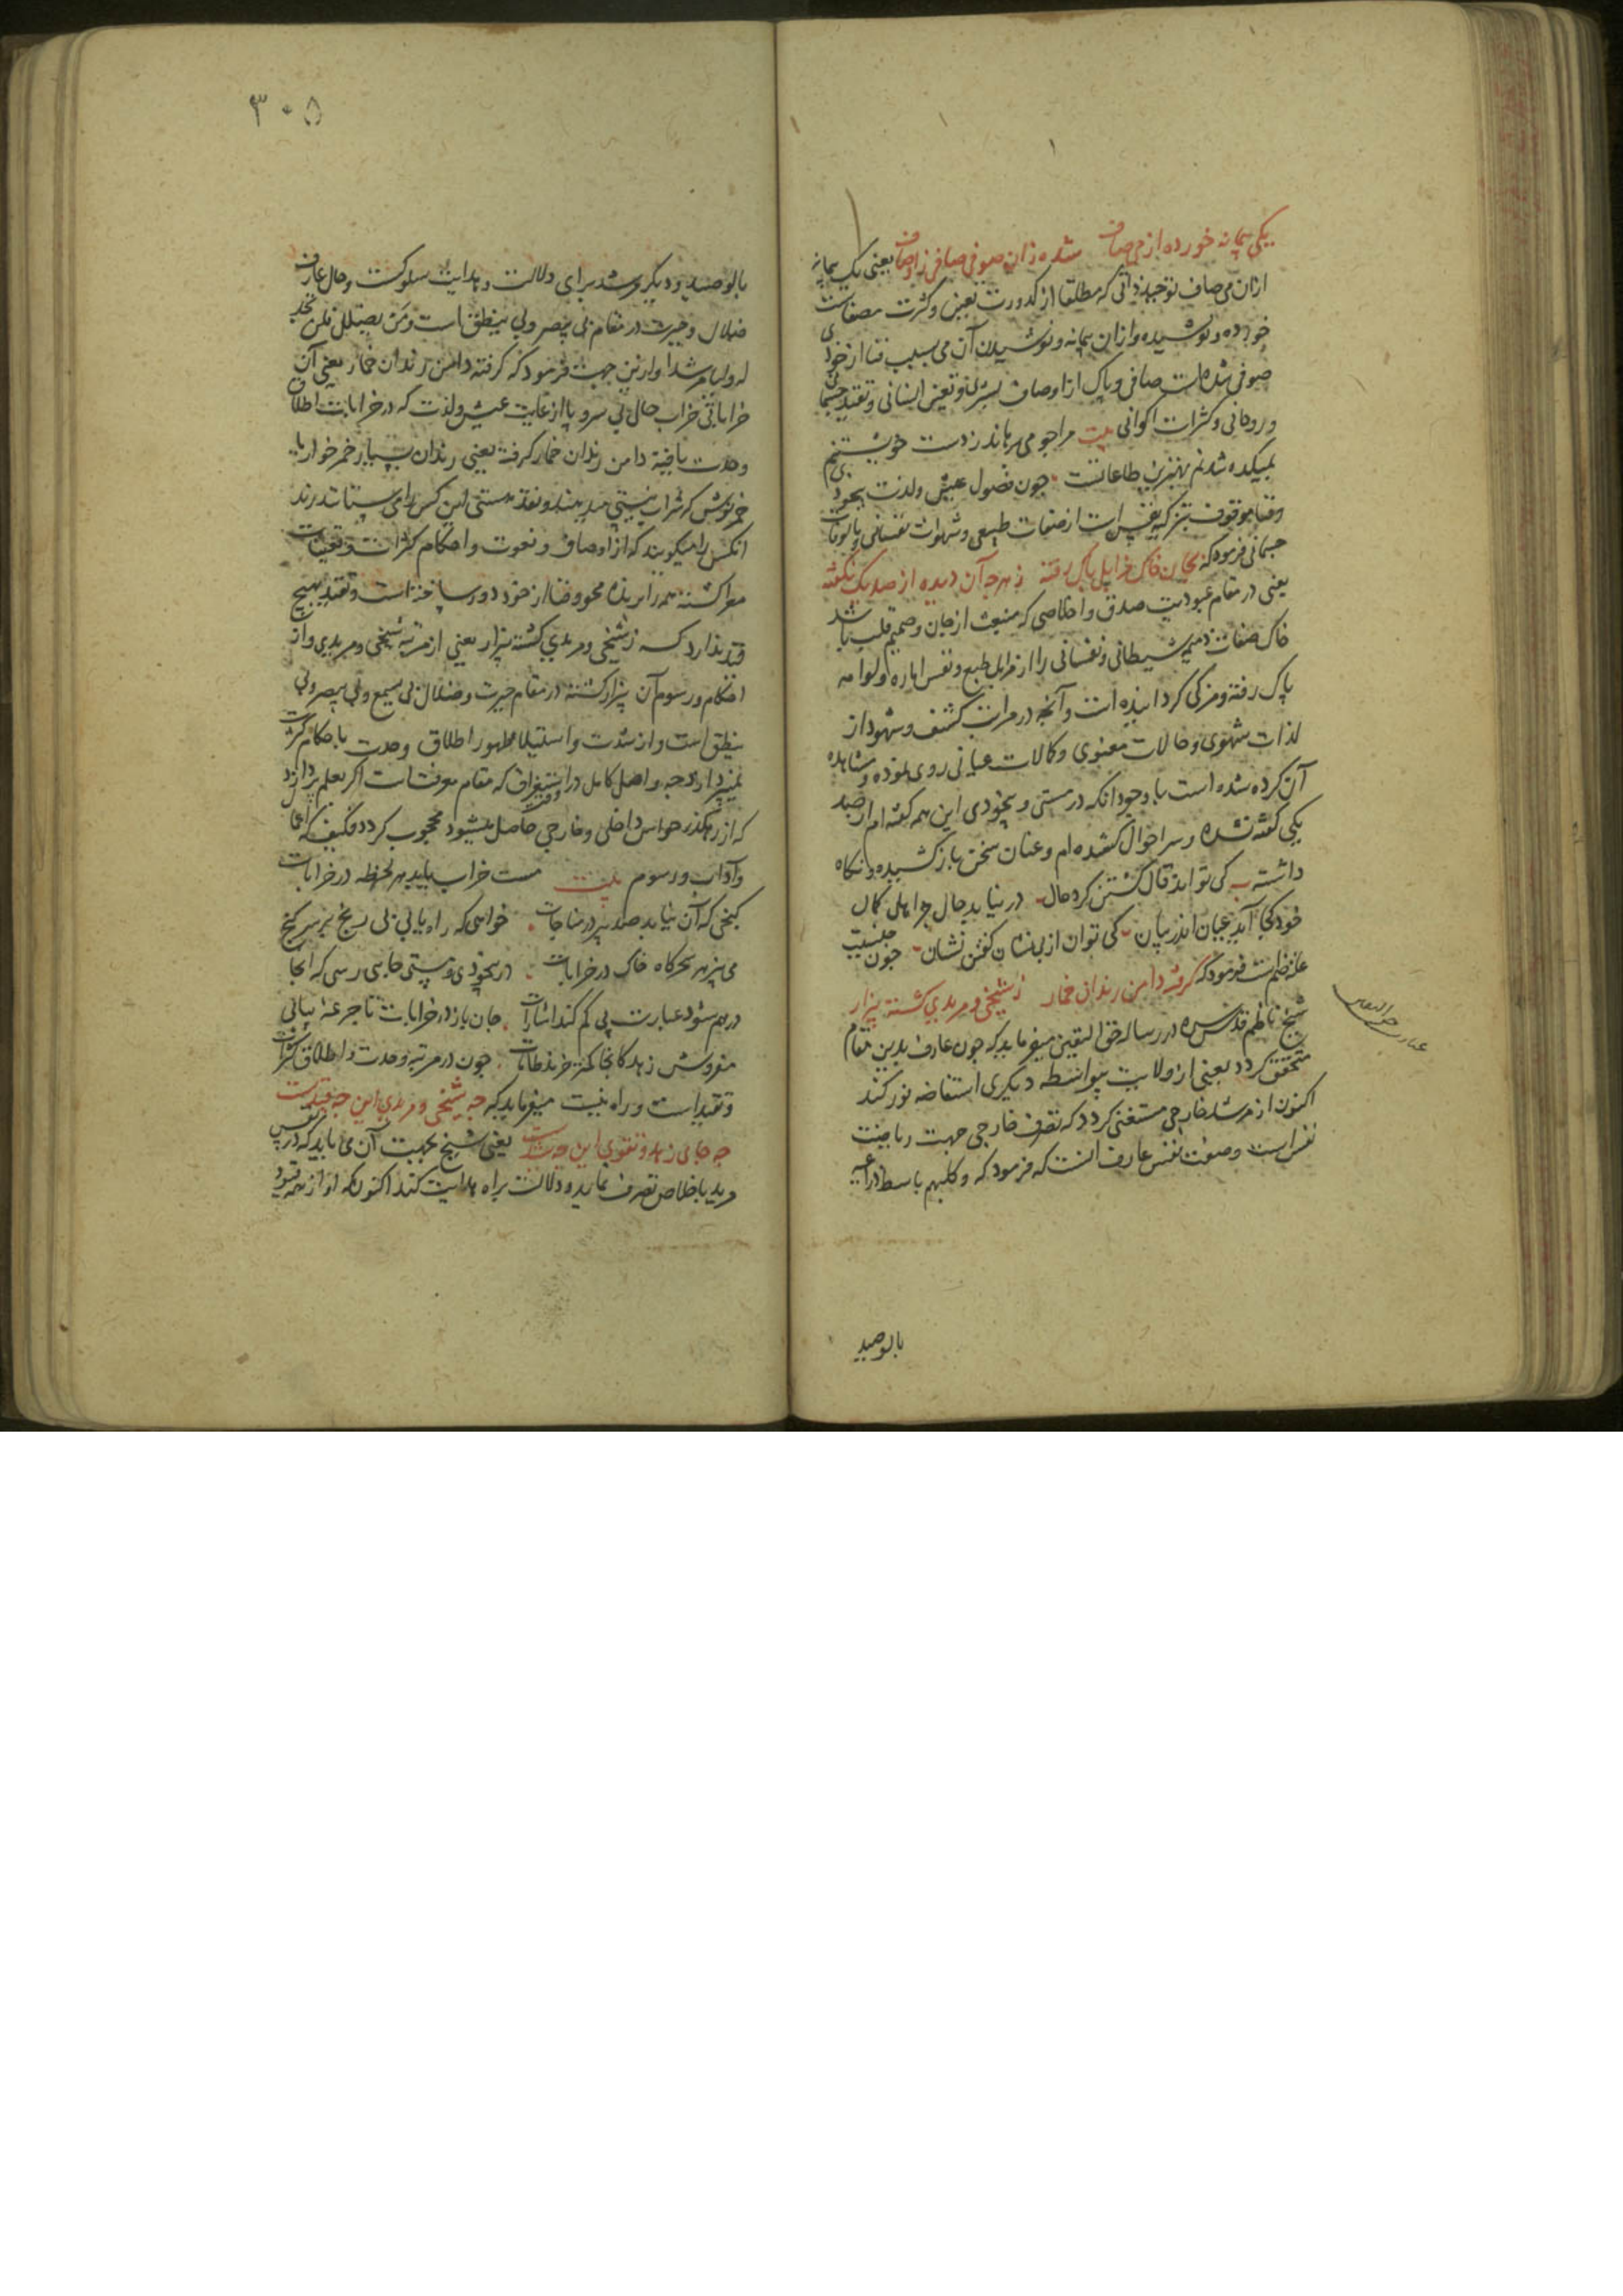 یکی پیمانه خورده از می صاف شده زان صوفی صافی ز اوصاف یعنی یک پیمانه
ازان می صاف توحید ذاتی که مطلقا از کدورت تعین و کثرت مصفاست
خورده و نوشیده و ازان پیمانه و نوشیدن آن می بسبب فنا از خودی
صوفی شده است صافی و پاک از اوصاف بشری و تعین انسانی و تقید جسمانی
و روحانی و کثرات اکوانی بیت مرا چو می برهاند ز دست خویشتنم
بمیکده شدنم بهترین طاعاتست چون حصول عیش و لذت بیخودی
و فنا موقوف بتزکیه نفس است از صفات طبیعی و شهوات نفسانی و مالوفات
جسمانی فرمود که بجان خاک مزابل پاک رفته ز هر چه آن دیده از صد یک نگفته
یعنی در مقام عبودیت صدق و اخلاصی که منبعث از جان و صمیم قلب باشد
خاک صفات ذمیمه شیطانی و نفسانی را از مزابل طبع و نفس اماره و لوامه
پاک رفته و مزکی گردانیده است و آنچه در مراتب کشف و شهود از
لذات شهودی و حالات معنوی و کمالات عیانی روی نموده و مشاهده
آن کرده شده است با وجود آنکه در مستی و بیخودی این همه گفته ام از صد
یکی گفته نشده و سر احوال نگشوده ام و عنان سخن باز کشیده و نگاه
داشته کی تواند قال گشتن گرد حال در نیابد حال جز اهل کمال
خود کجا آید عیان اندر بیان کی توان از بی نشان گفتن نشان چون جنسیت
علة ضم است فرمود که گرفته دامن رندان خمار ز شیخی و مریدی گشته بیزار
شیخ ناظم قدس سره در رساله حق الیقین میفرماید که چون عارف بدین مقام
متحقق گردد یعنی از ولایت بیواسطه دیگری استفاضه نور کند
اکنون از مرشد خارجی مستغنی گردد که تصرف خارجی جهت ریاضت
نفس است و صفت نفس عارف آنست که فرمود که و کلبهم باسط ذراعیه
عبارت حق الیقین
بالوصید
۳۰۵
بالوصید و دیگر مرشد برای دلالت و هدایت سلوکست و حال عارف
ضلال و حیرت در مقام بی یبصر و بی ینطق است و من یضلل فلن تجد
له ولیا مرشدا و ازین جهت فرمود که گرفته دامن رندان خمار یعنی آن
خراباتی خراب حال بی سر و پا از غایت عیش و لذت که در خرابات اطلاق
وحدت یافته دامن رندان خمار گرفته یعنی رندان بسیار خمر خوار یا
خمر فروش که شراب نیستی میدهند و نقد هستی این کس را می ستانند رند
آنکس را میگویند که از اوصاف و نعوت و احکام کثرات و تعینات
معرا گشته همه را برنده محو و فنا از خود دور ساخته است و تقید بهیچ
قید ندارد که ز شیخی و مریدی گشته بیزار یعنی از مرتبه شیخی و مریدی و از
احکام و رسوم آن بیزار گشته در مقام حیرت و ضلال بی یسمع و بی یبصر و بی
ینطق است و از شدت و استیلا ظهور اطلاق وحدت باحکام کثرت
نمی پردازد چه واصل کامل در استغراق که مقام معرفتست اگر بعلم پردازد
که از رهگذر حواس داخلی و خارجی حاصل میشود محجوب گردد فکیف که اعمال
و آداب و رسوم بیت مست خراب یابد هر لحظه در خرابات
گنجی که آن نیابد صد پیر در مناجات خواهی که راه یابی بی رنج بر سر گنج
می بیز هر سحرگاه خاک در خرابات در بیخودی و مستی جایی رسی که آنجا
در هم شود عبارت پی گم کند اشارات جان باز در خرابات تا جرعه بیابی
مفروش زهد کانجا کمتر خرند طامات چون در مرتبه وحدت و اطلاق کثرات
و تقید است و راه نیست میفرماید که چه شیخی و مریدی این چه قیدست
چه جای زهد و تقوی این چه شیدست یعنی شیخ بجهت آن می باید که در نفس
مرید باخلاص تصرف نماید و دلالت براه هدایت کند اکنون که او از همه قیود